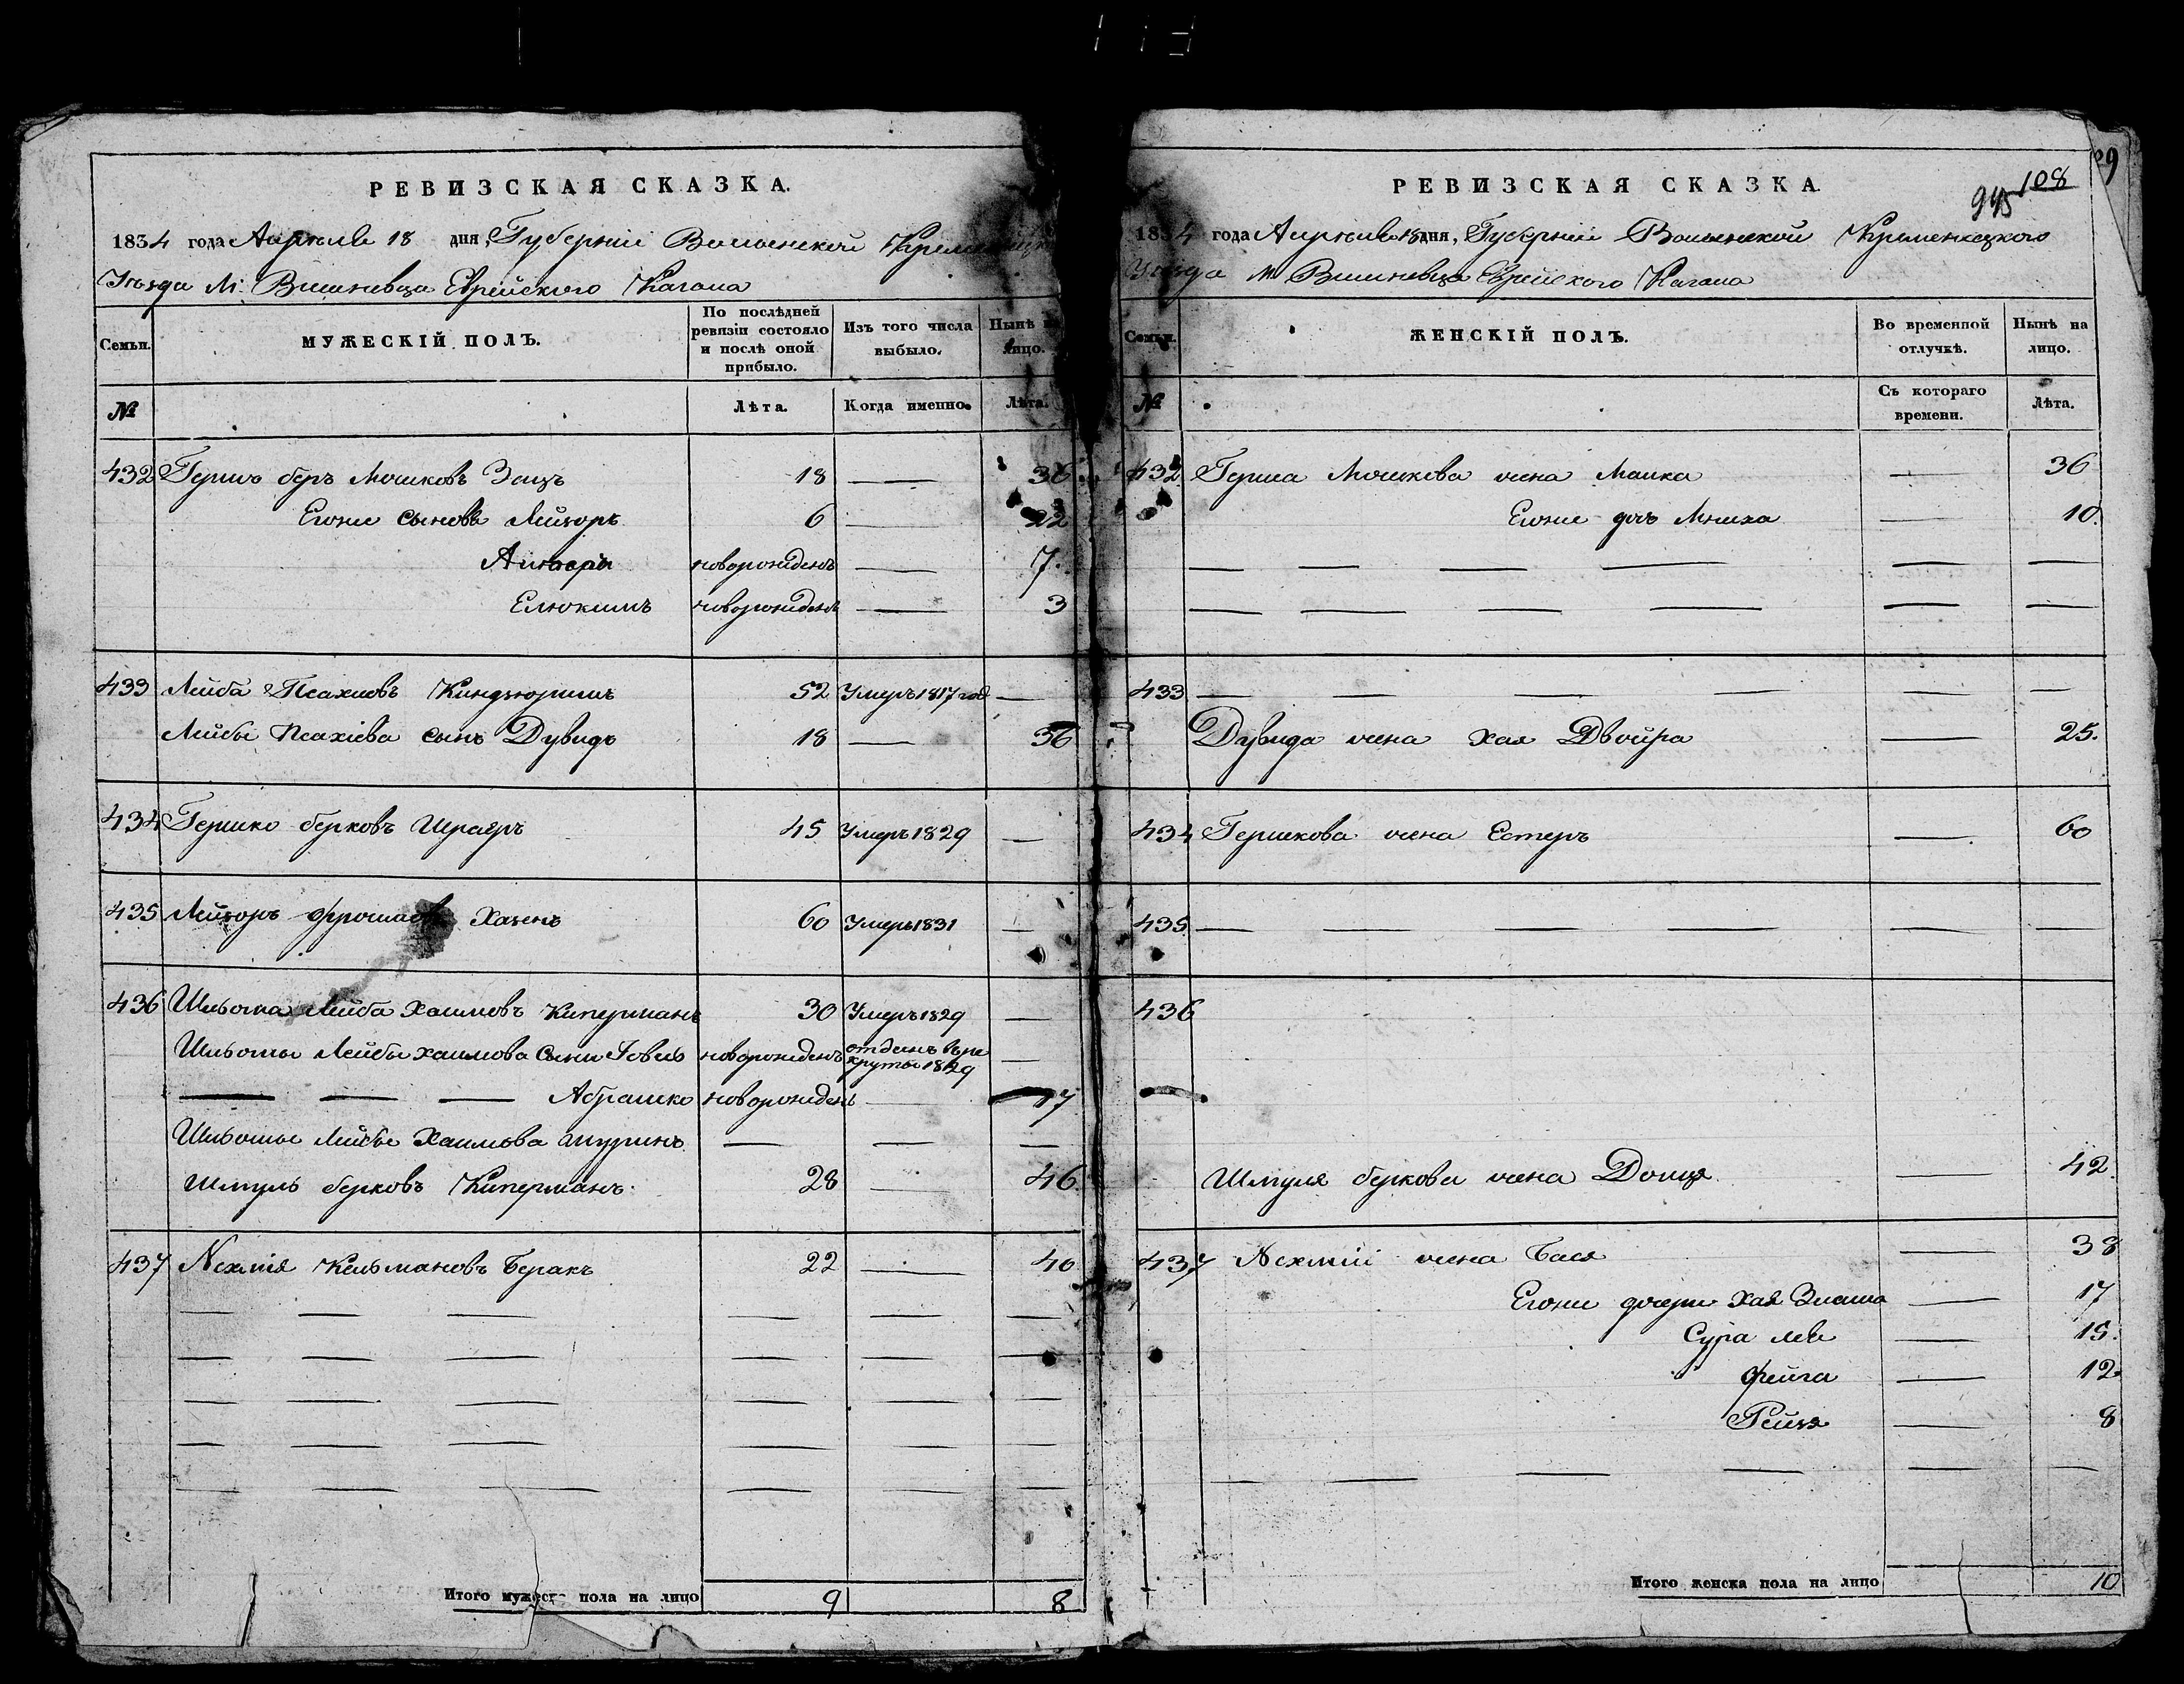 РЕВИЗСКАЯ СКАЗКА.
1834 года Апреля 18 дня, Губерніи Волынской Кременецкого
Уѣзда М. Вишневца Еврейского Кагала
Семьи.
МУЖЕСКІЙ ПОЛЪ.
По послѣдней ревизіи состояло и послѣ оной прибыло.
Изъ того числа выбыло.
Нынѣ на лицо.
№
Лѣта.
Когда именно.
Лѣта.
432 Гершъ беръ Мошковъ Зецъ 18 — 36
Егоже сыновя Лейзоръ 6 — 22
новорожденъ — 7.
Елюкимъ новорожденъ — 3
433 Лейба Псахиовъ 52 Умеръ 1817 год —
Лейбы Псахіева сынъ Дувидъ 18 — 36
434 Гершко берковъ 45 Умеръ 1829 —
435 Лейзоръ Фроимовъ Хазенъ 60 Умеръ 1831 —
436 Шльома Лейба Хаимовъ Киперманъ 30 Умеръ 1829 —
Шльомы Лейбы хаимова сыни Іовель новорожденъ отданъ въ ре
круты 1829 —
— — — Абрамко новорожденъ — 17
Шльомы Лейбы Хаимова шуринъ — — —
Шмуль берковъ Киперманъ 28 — 46
437 Нехмія Кельмановъ Беракъ 22 — 40
Итого мужеск пола на лицо 9 8
РЕВИЗСКАЯ СКАЗКА.
108
945
1834 года Апреля 18 дня, Губерніи Волынской Кременецкого
Уѣзда М Вишневца Еврейского Кагала
Семьи.
ЖЕНСКІЙ ПОЛЪ.
Во временной отлучкѣ.
Нынѣ на лицо.
№
Съ котораго времени.
Лѣта.
432 Герша Мошкова жена Малка — 36
Егоже дочь — 10.
— — — — — —
— — — — — —
433 — — — — — —
Дувида жена Хая Двойра — 25.
434 Гершкова жена Естеръ — 60
435 — — — — — —
436
Шмуля беркова жена — 42.
437 Нехміи жена Бася — 38
Егоже дочери Хая Злата — 17
Сура леа — 15.
Фейга — 12.
Рейзя — 8
— — — — — —
Итого женска пола на лицо 10